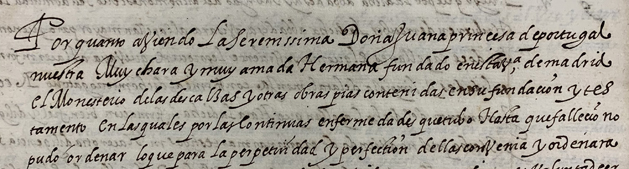 Por quanto aviendo La serenissima Doña Juana princesa de portugal
nuestra Muy chara y muy amada Hermana fundado en esta v.ª de madrid
el Monesterio de las descalças y otras obras pias contenidas en su fundación y tes
tamento En las quales por las Continuas enfermedades que tubo Hasta que fallecio no
pudo ordenar lo que para la perpetuidad y perfection dellas convenia y ordenara